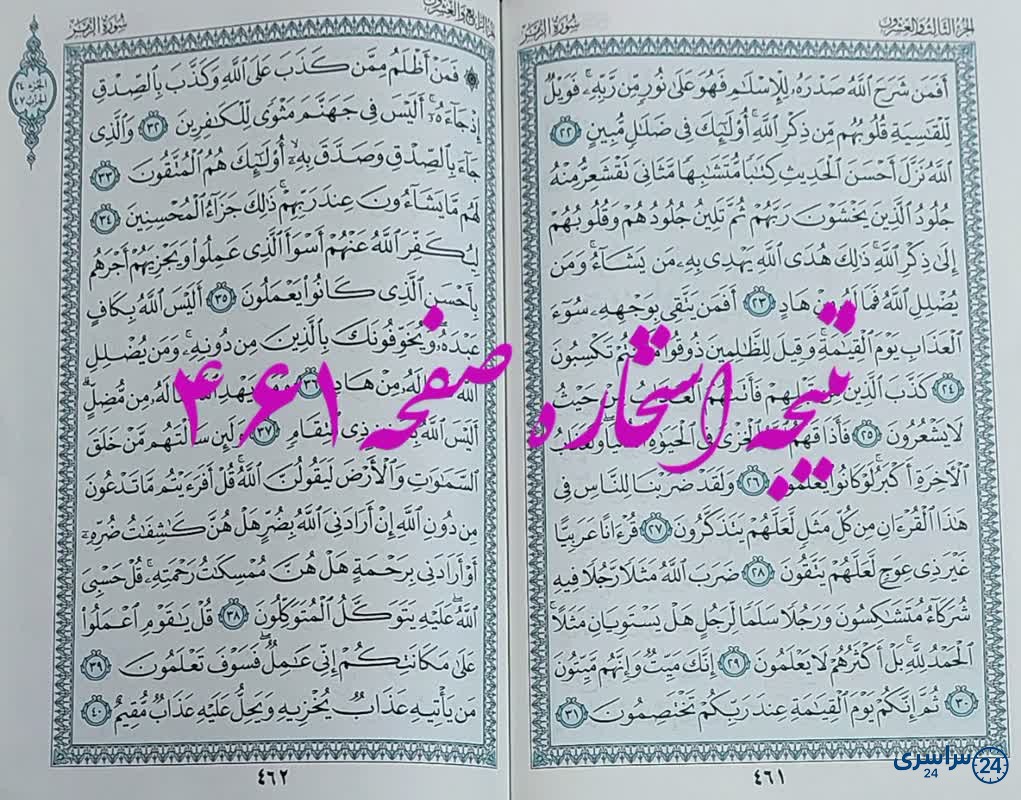 الجزء الثالث والعشرون
سورة الزمر
أَفَمَن شَرَحَ اللَّهُ صَدْرَهُ لِلْإِسْلَٰمِ فَهُوَ عَلَىٰ نُورٍ مِّن رَّبِّهِ ۚ فَوَيْلٌ
لِّلْقَٰسِيَةِ قُلُوبُهُم مِّن ذِكْرِ اللَّهِ ۚ أُولَٰئِكَ فِي ضَلَٰلٍ مُّبِينٍ ٢٢
اللَّهُ نَزَّلَ أَحْسَنَ الْحَدِيثِ كِتَٰبًا مُّتَشَٰبِهًا مَّثَانِيَ تَقْشَعِرُّ مِنْهُ
جُلُودُ الَّذِينَ يَخْشَوْنَ رَبَّهُمْ ثُمَّ تَلِينُ جُلُودُهُمْ وَقُلُوبُهُمْ
إِلَىٰ ذِكْرِ اللَّهِ ۚ ذَٰلِكَ هُدَى اللَّهِ يَهْدِي بِهِ مَن يَشَاءُ ۚ وَمَن
يُضْلِلِ اللَّهُ فَمَا لَهُ مِنْ هَادٍ ٢٣ أَفَمَن يَتَّقِي بِوَجْهِهِ سُوءَ
الْعَذَابِ يَوْمَ الْقِيَٰمَةِ ۚ وَقِيلَ لِلظَّٰلِمِينَ ذُوقُوا مَا كُنتُمْ تَكْسِبُونَ
٢٤ كَذَّبَ الَّذِينَ مِن قَبْلِهِمْ فَأَتَىٰهُمُ الْعَذَابُ مِنْ حَيْثُ
لَا يَشْعُرُونَ ٢٥ فَأَذَاقَهُمُ اللَّهُ الْخِزْيَ فِي الْحَيَوٰةِ الدُّنْيَا ۖ وَلَعَذَابُ
الْآخِرَةِ أَكْبَرُ ۚ لَوْ كَانُوا يَعْلَمُونَ ٢٦ وَلَقَدْ ضَرَبْنَا لِلنَّاسِ فِي
هَٰذَا الْقُرْءَانِ مِن كُلِّ مَثَلٍ لَّعَلَّهُمْ يَتَذَكَّرُونَ ٢٧ قُرْءَانًا عَرَبِيًّا
غَيْرَ ذِي عِوَجٍ لَّعَلَّهُمْ يَتَّقُونَ ٢٨ ضَرَبَ اللَّهُ مَثَلًا رَّجُلًا فِيهِ
شُرَكَاءُ مُتَشَٰكِسُونَ وَرَجُلًا سَلَمًا لِّرَجُلٍ هَلْ يَسْتَوِيَانِ مَثَلًا ۚ
الْحَمْدُ لِلَّهِ ۚ بَلْ أَكْثَرُهُمْ لَا يَعْلَمُونَ ٢٩ إِنَّكَ مَيِّتٌ وَإِنَّهُم مَّيِّتُونَ
٣٠ ثُمَّ إِنَّكُمْ يَوْمَ الْقِيَٰمَةِ عِندَ رَبِّكُمْ تَخْتَصِمُونَ ٣١
٤٦١
الجزء الرابع والعشرون
سورة الزمر
الجزء ٢٤
الحزب ٤٧
فَمَنْ أَظْلَمُ مِمَّن كَذَبَ عَلَى اللَّهِ وَكَذَّبَ بِالصِّدْقِ
إِذْ جَاءَهُ ۚ أَلَيْسَ فِي جَهَنَّمَ مَثْوًى لِّلْكَٰفِرِينَ ٣٢ وَالَّذِي
جَاءَ بِالصِّدْقِ وَصَدَّقَ بِهِ ۙ أُولَٰئِكَ هُمُ الْمُتَّقُونَ ٣٣
لَهُم مَّا يَشَاءُونَ عِندَ رَبِّهِمْ ۚ ذَٰلِكَ جَزَاءُ الْمُحْسِنِينَ ٣٤
لِيُكَفِّرَ اللَّهُ عَنْهُمْ أَسْوَأَ الَّذِي عَمِلُوا وَيَجْزِيَهُمْ أَجْرَهُم
بِأَحْسَنِ الَّذِي كَانُوا يَعْمَلُونَ ٣٥ أَلَيْسَ اللَّهُ بِكَافٍ
عَبْدَهُ ۖ وَيُخَوِّفُونَكَ بِالَّذِينَ مِن دُونِهِ ۚ وَمَن يُضْلِلِ
اللَّهُ فَمَا لَهُ مِنْ هَادٍ ٣٦ وَمَن يَهْدِ اللَّهُ فَمَا لَهُ مِن مُّضِلٍّ ۗ
أَلَيْسَ اللَّهُ بِعَزِيزٍ ذِي انتِقَامٍ ٣٧ وَلَئِن سَأَلْتَهُم مَّنْ خَلَقَ
السَّمَٰوَٰتِ وَالْأَرْضَ لَيَقُولُنَّ اللَّهُ ۚ قُلْ أَفَرَءَيْتُم مَّا تَدْعُونَ
مِن دُونِ اللَّهِ إِنْ أَرَادَنِيَ اللَّهُ بِضُرٍّ هَلْ هُنَّ كَٰشِفَٰتُ ضُرِّهِ
أَوْ أَرَادَنِي بِرَحْمَةٍ هَلْ هُنَّ مُمْسِكَٰتُ رَحْمَتِهِ ۚ قُلْ حَسْبِيَ
اللَّهُ ۖ عَلَيْهِ يَتَوَكَّلُ الْمُتَوَكِّلُونَ ٣٨ قُلْ يَٰقَوْمِ اعْمَلُوا
عَلَىٰ مَكَانَتِكُمْ إِنِّي عَٰمِلٌ ۖ فَسَوْفَ تَعْلَمُونَ ٣٩
مَن يَأْتِيهِ عَذَابٌ يُخْزِيهِ وَيَحِلُّ عَلَيْهِ عَذَابٌ مُّقِيمٌ ٤٠
٤٦٢
نتیجه استخاره صفحه ۴۶۱
سراسری
24
24